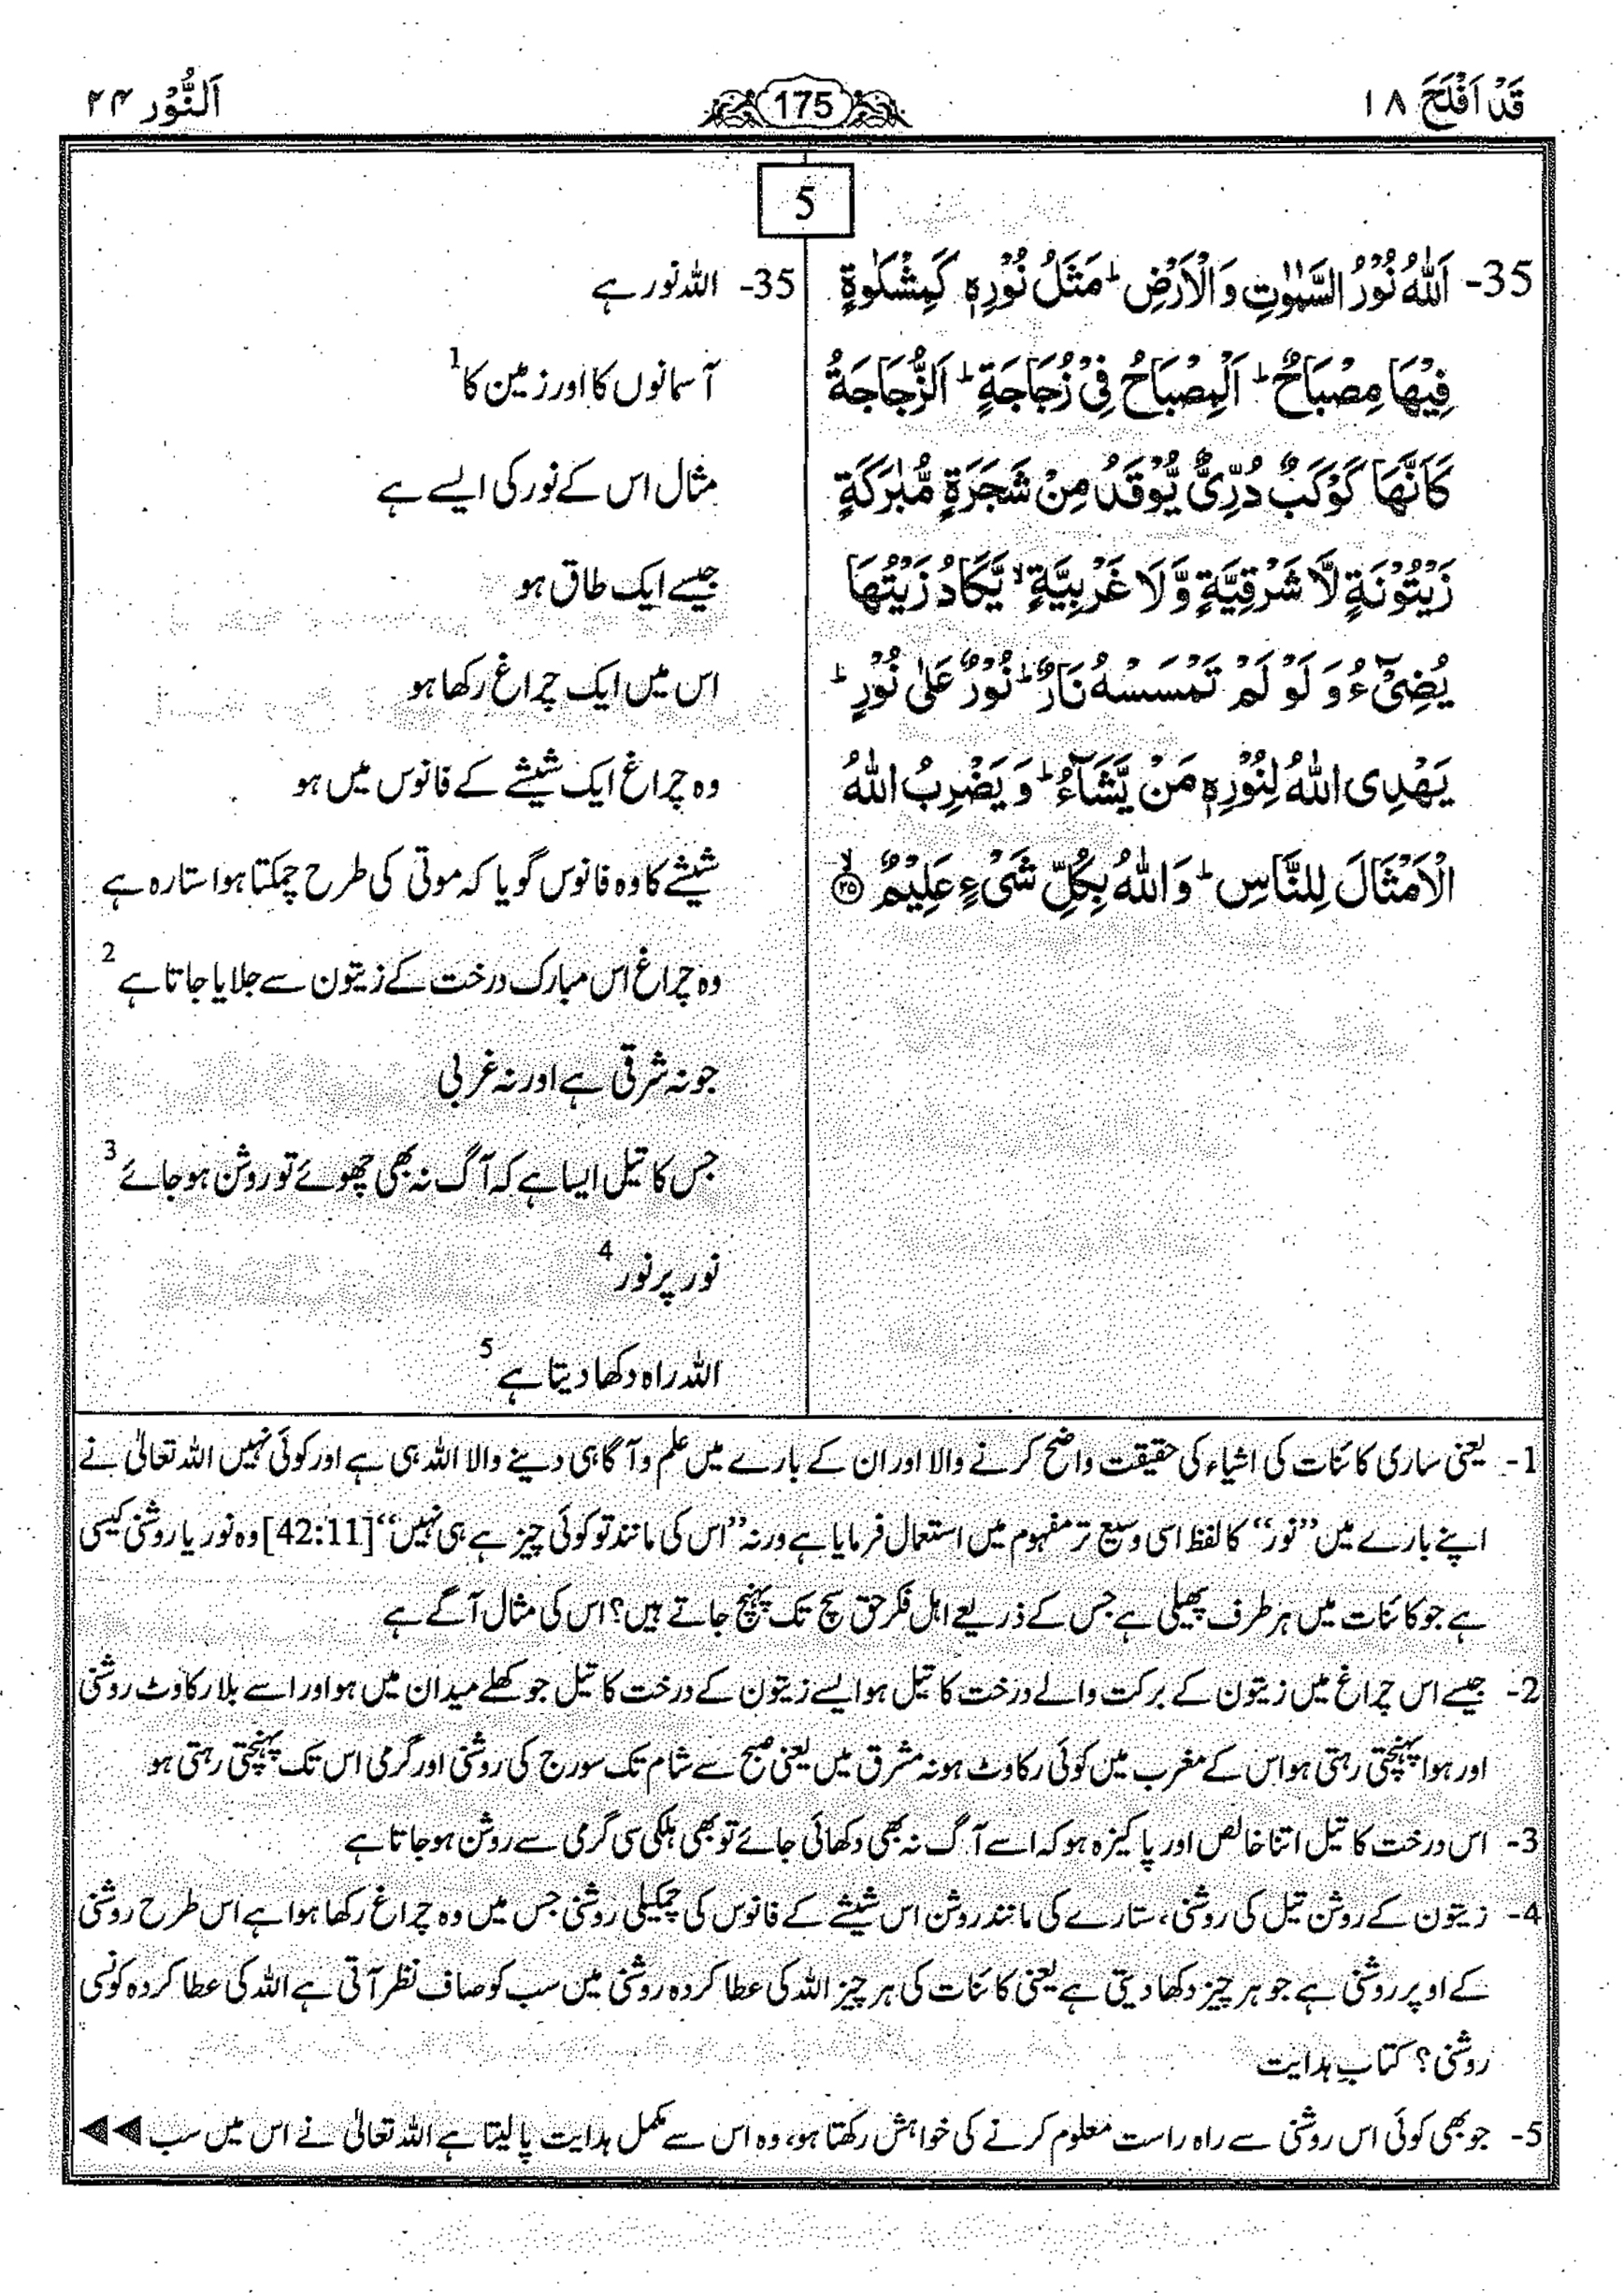 قَدْ اَفْلَحَ ۱۸
175
اَلنُّوْر ۲۴
5
35- اَللّٰهُ نُوْرُ السَّمٰوٰتِ وَالْاَرْضِ ؕ مَثَلُ نُوْرِهٖ كَمِشْكٰوةٍ
فِيْهَا مِصْبَاحٌ ؕ اَلْمِصْبَاحُ فِیْ زُجَاجَةٍ ؕ اَلزُّجَاجَةُ
كَاَنَّهَا كَوْكَبٌ دُرِّیٌّ يُّوْقَدُ مِنْ شَجَرَةٍ مُّبٰرَكَةٍ
زَيْتُوْنَةٍ لَّا شَرْقِيَّةٍ وَّلَا غَرْبِيَّةٍ ۙ يَّكَادُ زَيْتُهَا
يُضِیْٓءُ وَ لَوْ لَمْ تَمْسَسْهُ نَارٌ ؕ نُوْرٌ عَلٰی نُوْرٍ ؕ
يَهْدِی اللّٰهُ لِنُوْرِهٖ مَنْ يَّشَآءُ ؕ وَ يَضْرِبُ اللّٰهُ
الْاَمْثَالَ لِلنَّاسِ ؕ وَاللّٰهُ بِكُلِّ شَیْءٍ عَلِيْمٌ ۙ ﴿۳۵﴾
35- اللہ نور ہے
آسمانوں کا اور زمین کا 1
مثال اس کے نور کی ایسے ہے
جیسے ایک طاق ہو
اس میں ایک چراغ رکھا ہو
وہ چراغ ایک شیشے کے فانوس میں ہو
شیشے کا وہ فانوس گویا کہ موتی کی طرح چمکتا ہوا ستارہ ہے
وہ چراغ اس مبارک درخت کے زیتون سے جلایا جاتا ہے 2
جو نہ شرقی ہے اور نہ غربی
جس کا تیل ایسا ہے کہ آگ نہ بھی چھوئے تو روشن ہو جائے 3
نور پر نور 4
اللہ راہ دکھا دیتا ہے 5
1- یعنی ساری کائنات کی اشیاء کی حقیقت واضح کرنے والا اور ان کے بارے میں علم و آگاہی دینے والا اللہ ہی ہے اور کوئی نہیں اللہ تعالیٰ نے
اپنے بارے میں ’’نور‘‘ کا لفظ اسی وسیع تر مفہوم میں استعمال فرمایا ہے ورنہ ’’اس کی مانند تو کوئی چیز ہے ہی نہیں‘‘ [42:11] وہ نور یا روشنی کیسی
ہے جو کائنات میں ہر طرف پھیلی ہے جس کے ذریعے اہل فکر حق سچ تک پہنچ جاتے ہیں؟ اس کی مثال آگے ہے
2- جیسے اس چراغ میں زیتون کے برکت والے درخت کا تیل ہو ایسے زیتون کے درخت کا تیل جو کھلے میدان میں ہو اور اسے بلا رکاوٹ روشنی
اور ہوا پہنچتی رہتی ہو اس کے مغرب میں کوئی رکاوٹ ہو نہ مشرق میں یعنی صبح سے شام تک سورج کی روشنی اور گرمی اس تک پہنچتی رہتی ہو
3- اس درخت کا تیل اتنا خالص اور پاکیزہ ہو کہ اسے آگ نہ بھی دکھائی جائے تو بھی ہلکی سی گرمی سے روشن ہو جاتا ہے
4- زیتون کے روشن تیل کی روشنی، ستارے کی مانند روشن اس شیشے کے فانوس کی چمکیلی روشنی جس میں وہ چراغ رکھا ہوا ہے اس طرح روشنی
کے اوپر روشنی ہے جو ہر چیز دکھا دیتی ہے یعنی کائنات کی ہر چیز اللہ کی عطا کردہ روشنی میں سب کو صاف نظر آتی ہے اللہ کی عطا کردہ کونسی
روشنی؟ کتابِ ہدایت
5- جو بھی کوئی اس روشنی سے راہ راست معلوم کرنے کی خواہش رکھتا ہو، وہ اس سے مکمل ہدایت پا لیتا ہے اللہ تعالیٰ نے اس میں سب ◀◀